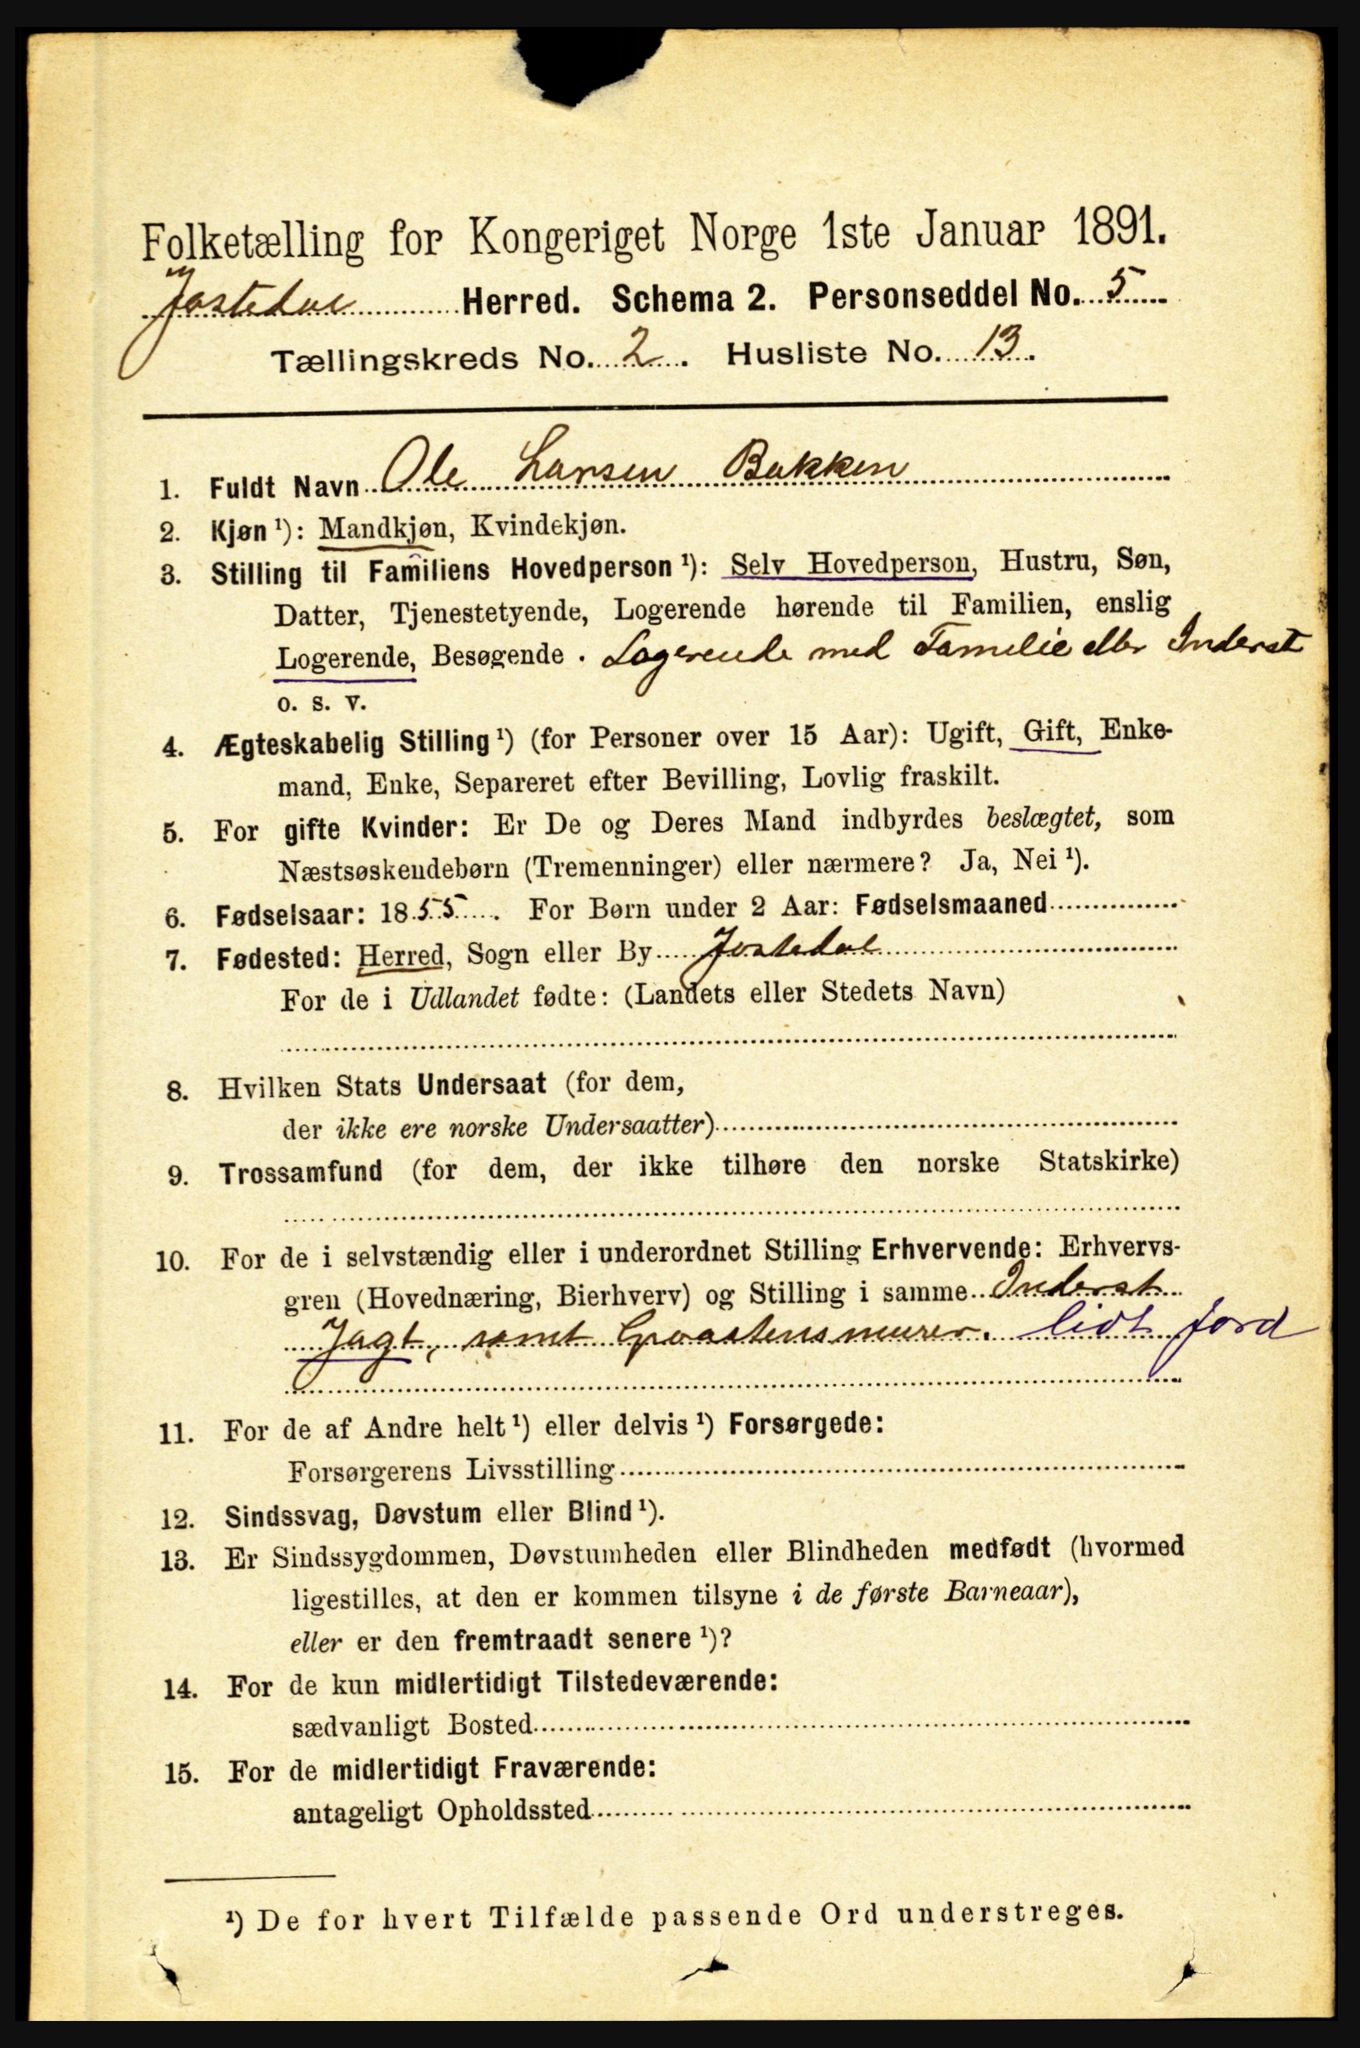 Folketælling for Kongeriget Norge 1ste Januar 1891.
Jostedal Herred. Schema 2. Personseddel No. 5
Tællingskreds No. 2. Husliste No. 13.
1. Fuldt Navn Ole Larsen Bakken
2. Kjøn ¹): Mandkjøn, Kvindekjøn.
3. Stilling til Familiens Hovedperson ¹): Selv Hovedperson, Hustru, Søn,
Datter, Tjenestetyende, Logerende hørende til Familien, enslig
Logerende, Besøgende. Logerende med Familie eller Inderst
o. s. v.
4. Ægteskabelig Stilling ¹) (for Personer over 15 Aar): Ugift, Gift, Enke-
mand, Enke, Separeret efter Bevilling, Lovlig fraskilt.
5. For gifte Kvinder: Er De og Deres Mand indbyrdes beslægtet, som
Næstsøskendebørn (Tremenninger) eller nærmere? Ja, Nei ¹).
6. Fødselsaar: 1855. For Børn under 2 Aar: Fødselsmaaned
7. Fødested: Herred, Sogn eller By Jostedal
For de i Udlandet fødte: (Landets eller Stedets Navn)
8. Hvilken Stats Undersaat (for dem,
der ikke ere norske Undersaatter)
9. Trossamfund (for dem, der ikke tilhøre den norske Statskirke)
10. For de i selvstændig eller i underordnet Stilling Erhvervende: Erhvervs-
gren (Hovednæring, Bierhverv) og Stilling i samme Inderst
Jagt, samt Graastensmurer. lidt jord
11. For de af Andre helt ¹) eller delvis ¹) Forsørgede:
Forsørgerens Livsstilling
12. Sindssvag, Døvstum eller Blind ¹).
13. Er Sindssygdommen, Døvstumheden eller Blindheden medfødt (hvormed
ligestilles, at den er kommen tilsyne i de første Barneaar),
eller er den fremtraadt senere ¹)?
14. For de kun midlertidigt Tilstedeværende:
sædvanligt Bosted
15. For de midlertidigt Fraværende:
antageligt Opholdssted
¹) De for hvert Tilfælde passende Ord understreges.